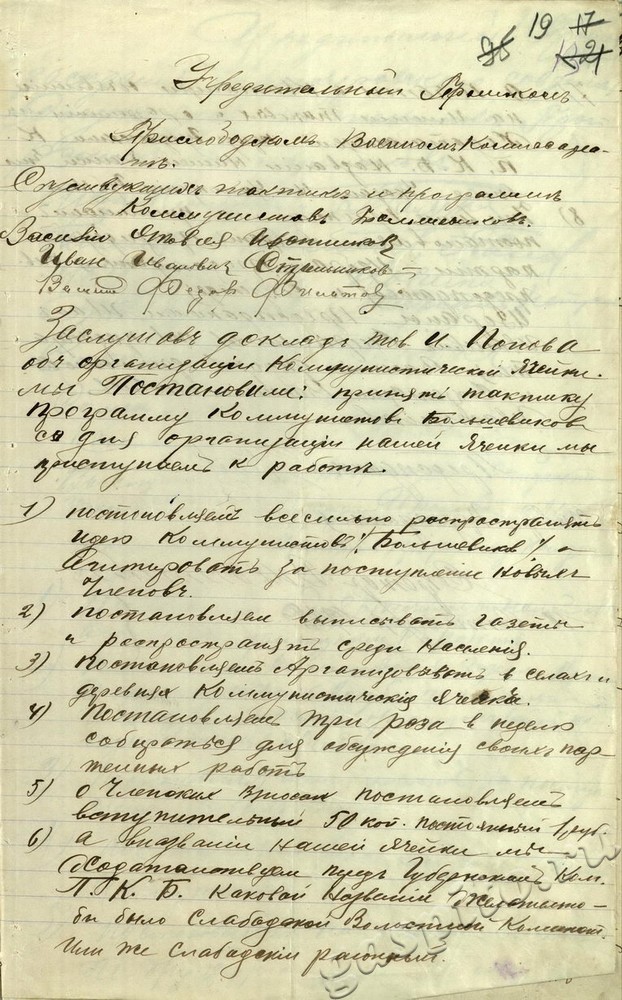 19 17
36 13 21
Учредительный Протоколъ
При Слободскомъ Военномъ Комиссариа-
тъ.
тактикъ и программъ
Коммунистовъ Большевиковъ.
Василий Яковлев
Иван Иванович Стрельников
Федор Филатов
Заслушовъ докладъ тов И. Попова
объ организации Коммунистической Ячейки.
мы Постановили: принять тактику
программу Коммунистовъ Большевиковъ
со дня организации нашей Ячейки мы
приступаемъ к работъ.
1) постановляемъ всесильно распространять
идею Коммунистовъ /Большевиков/ и
Агитировать за поступление новыхъ
Членовъ.
2) постановляем выписывать газеты
и распространять среди Населения.
3) Постановляемъ Арганизовывать в селах и
деревнях Коммунистический Ячейки.
4) Постановляем три роза в неделю
собираться для обсуждения своихъ пар-
тейных работъ
5) о Членских взносах постановляемъ
вступительный 50 кой. постоянный 1 руб.
6) а в названии нашей Ячейки мы
Ходатайствуем передъ Губернский Ком.
П. К. Б. Каковой Название Желательно-
бы было Слабадской Волостной Комитет.
Или же Слабадский районный.
gaspito.ru